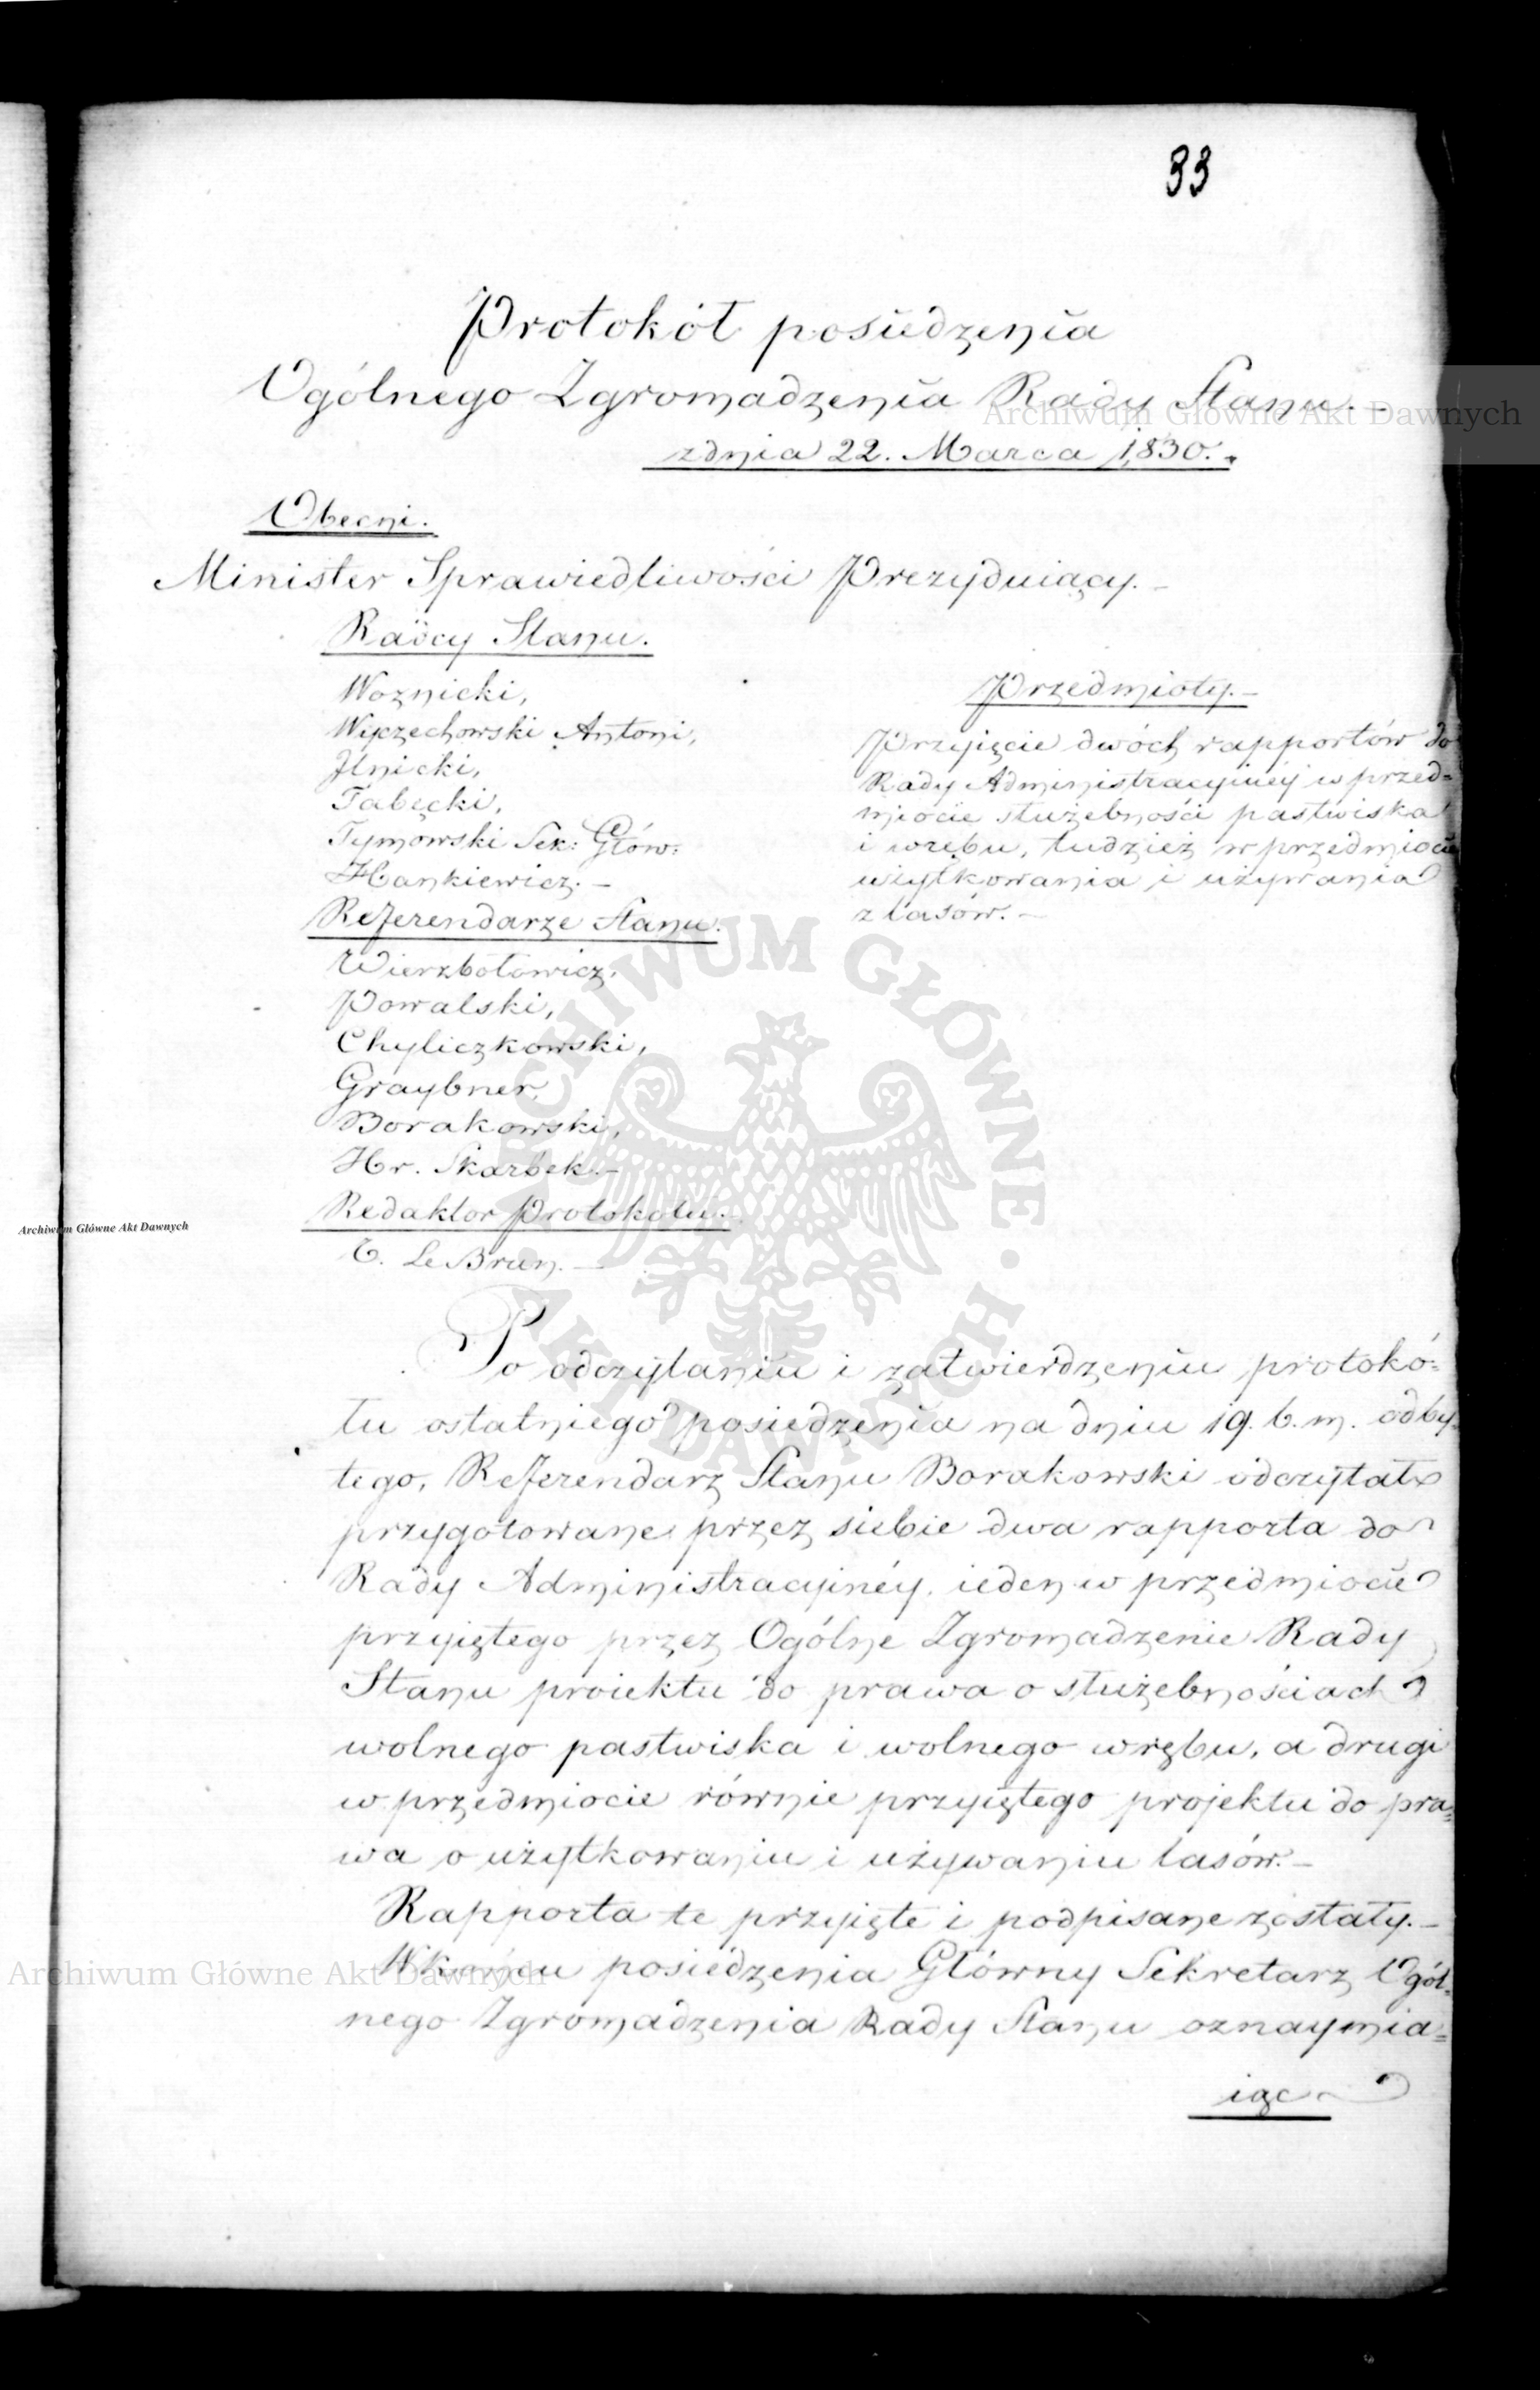 33
Protokół posiedzenia
Ogólnego Zgromadzenia Rady Stanu.
z dnia 22. Marca 1830.
Obecni.
Minister Sprawiedliwości Prezyduiący.
Radcy Stanu.
Woznicki,
Wyczechowski Antoni,
Jlnicki,
Tabęcki,
Tymowski Sek: Głów:
Hankiewicz.
Referendarze Stanu.
Wierzbołowicz,
Powalski,
Chyliczkowski,
Graybner,
Borakowski,
Hr. Skarbek.
Redaktor Protokołu.
T. Le Brun.
Przedmioty.
Przyięcie dwóch rapportów do
Rady Administracyinéy w przed=
miocie służebności pastwiska
i wrębu, tudzież w przedmiocie
użytkowania i używania
z lasów.
Po odczytaniu i zatwierdzeniu protokó=
łu ostatniego posiedzenia na dniu 19. b. m. odby=
tego, Referendarz Stanu Borakowski odczytał
przygotowane przez siebie dwa rapporta do
Rady Administracyinéy, ieden w przedmiocie
przyiętego przez Ogólne Zgromadzenie Rady
Stanu proiektu do prawa o służebnościach
wolnego pastwiska i wolnego wrębu, a drugi
w przedmiocie równie przyiętego projektu do pra=
wa o użytkowaniu i używaniu lasów.
Rapporta te przyięte i podpisane zostały.
W końcu posiedzenia Główny Sekretarz Ogól=
nego Zgromadzenia Rady Stanu oznaymia=
iąc
Archiwum Główne Akt Dawnych
Archiwum Główne Akt Dawnych
Archiwum Główne Akt Dawnych
ARCHIWUM GŁÓWNE AKT DAWNYCH